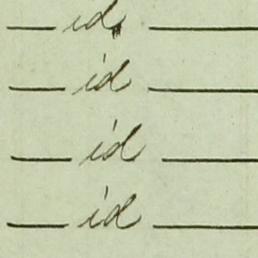 id.
id
id
id